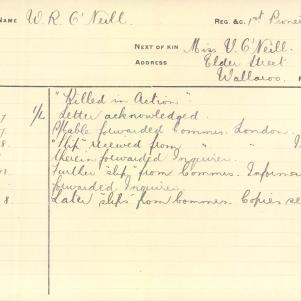 NAME W. R. O'Neill. REG. &c. 1st Pioneer
NEXT OF KIN Miss V. O'Neill.
ADDRESS Elder Street
Wallaroo.
"Killed in Action"
1/L Letter acknowledged.
forwarded Commis. London.
"Slip" received from " "
therein forwarded Inquirer.
Further "slip" from Commis.
forwarded Inquirer.
8 Later "slips" from Commis. Copies se